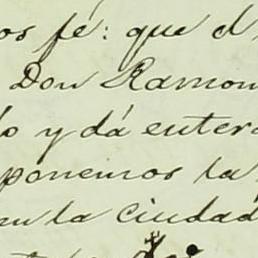 os fé: que d
Don Ramon
o y dá enter
ponemos la
en la Ciudad